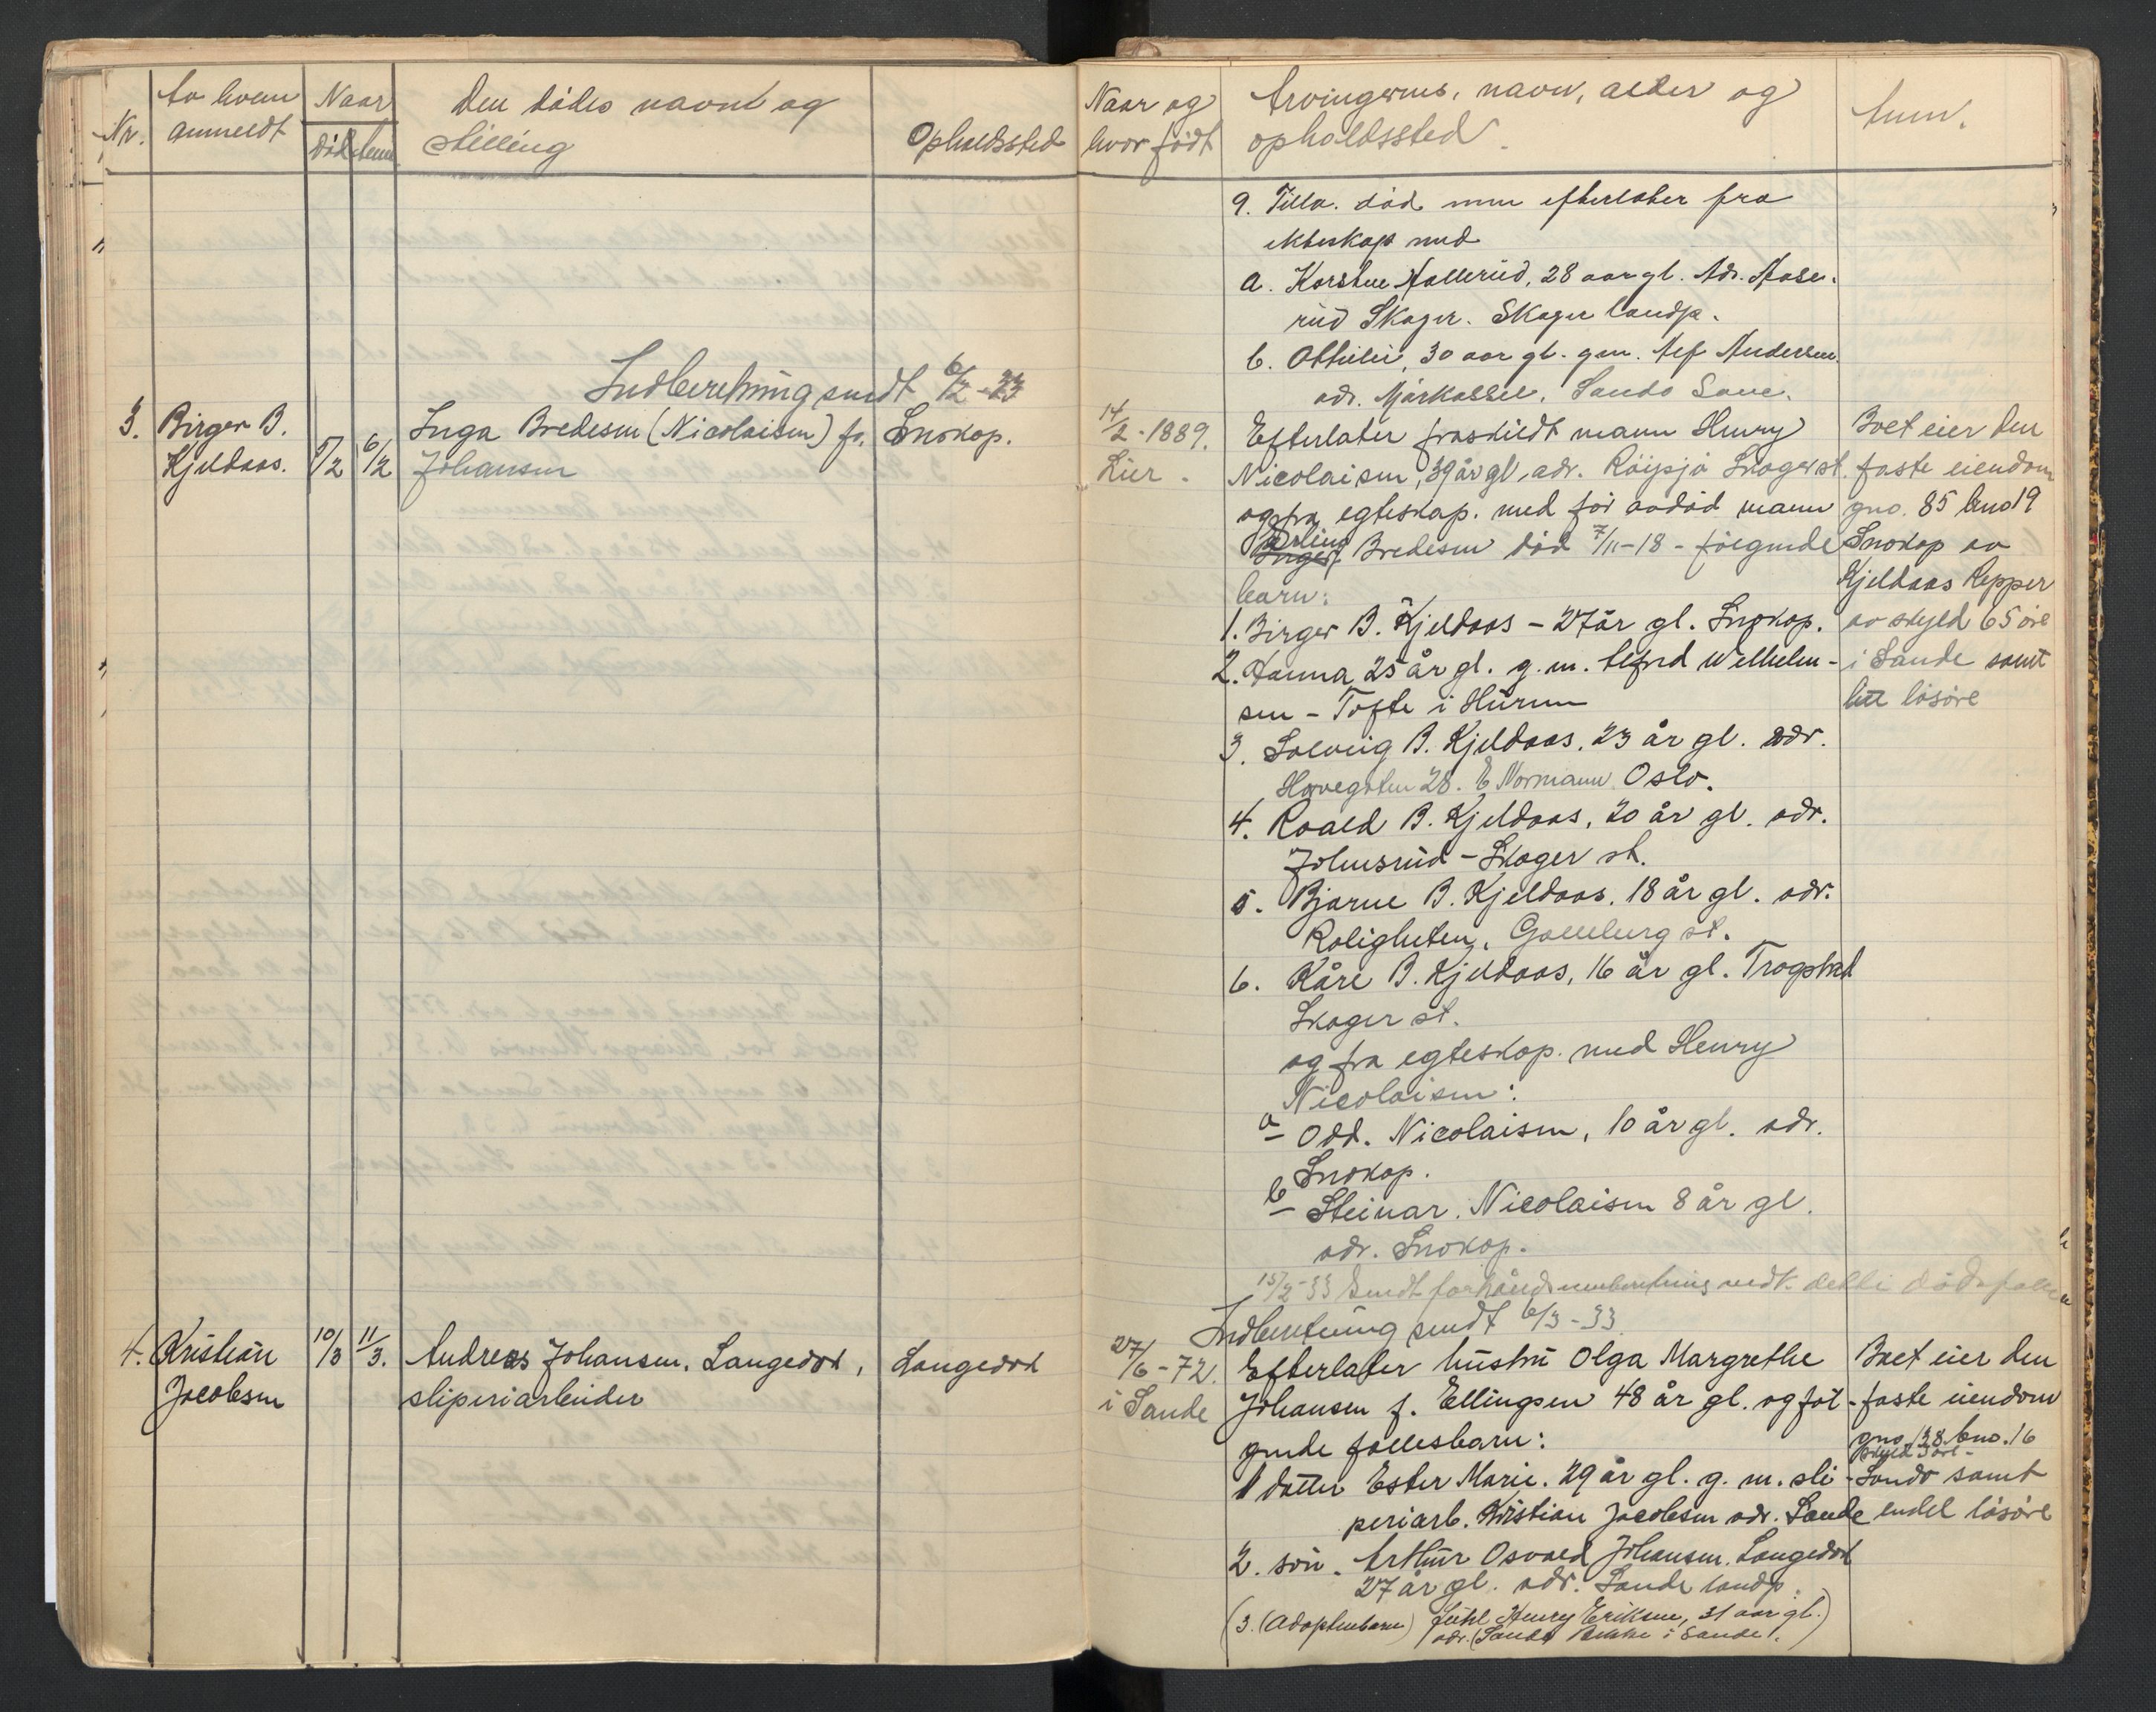 Nr.
Av hvem
anmeldt
Naar
död
anm.
Den dödes navn og
stilling
Opholdssted
Naar og
hvor födt
Arvingernes, navn, alder og
opholdssted.
Anm.
9. Tilla. död men efterlater fra
ekteskap med
a. Hallerud, 28 aar gl. Adr.
rud Skoger. Skoger landp.
b. Othilie, 30 aar gl. g.m. Alf Andersen.
adr. Sande
Indberetning sendt 6/2-33
3.
Birger B.
Kjeldaas.
5/2
6/2
Inga Bredesen (Nicolaisen) f.
Johansen
Snokop.
14/2-1889.
Lier.
Efterlater fraskildt mann Henry
Nicolaisen, 39 år gl, adr. Röysjö Skoger st.
og fra egteskap. med för avdöd mann
Inga Erling Bredesen död 7/11-18 - fölgende
barn:
1. Birger B. Kjeldaas - 27 år gl. Snokop.
2. Hanna 25 år gl. g.m. Alfred Wilhelm-
sen - Tofte i Hurum
3. Solveig B. Kjeldaas, 23 år gl. adr.
28. E Normann Oslo.
4. Roald B. Kjeldaas, 20 år gl. adr.
Johnsrud - Skoger st.
5. Bjarne B. Kjeldaas, 18 år gl. adr.
Roligheten, Galleberg st.
6. Kåre B. Kjeldaas, 16 år gl. Trogstad
Skoger st.
og fra egteskap. med Henry
Nicolaisen:
a Odd. Nicolaisen, 10 år gl. adr.
Snokop.
b Steinar. Nicolaisen 8 år gl.
adr. Snokop.
15/2-33 sendt vedk. dette dödsfall
Boet eier den
faste eiendom
gno. 85 bno 19
Snokop av
Kjeldaas Kopper
av skyld 65 öre
i Sande samt
litt lösöre
Indberetning sendt 6/3-33
4.
Kristian
Jacobsen
10/3
11/3.
Andreas Johansen, Langedot,
sliperiarbeider
Langedot
27/6-72.
i Sande
Efterlater hustru Olga Margrethe
Johansen f. Ellingsen 48 år gl. og föl-
gende fællesbarn:
1 datter Ester Marie. 29 år gl. g. m. sli-
periarb. Kristian Jacobsen adr. Sande
2. sön. Arthur Osvald Johansen. Langedot
27 år gl. adr. Sande landp.
(3. (Adoptivbarn) Henry Eriksen, 31 aar gl.)
adr. (Sande i Sande.)
Boet eier den
faste eiendom
gno. 138 bno. 16
skyld öre-
Sande samt
endel lösöre